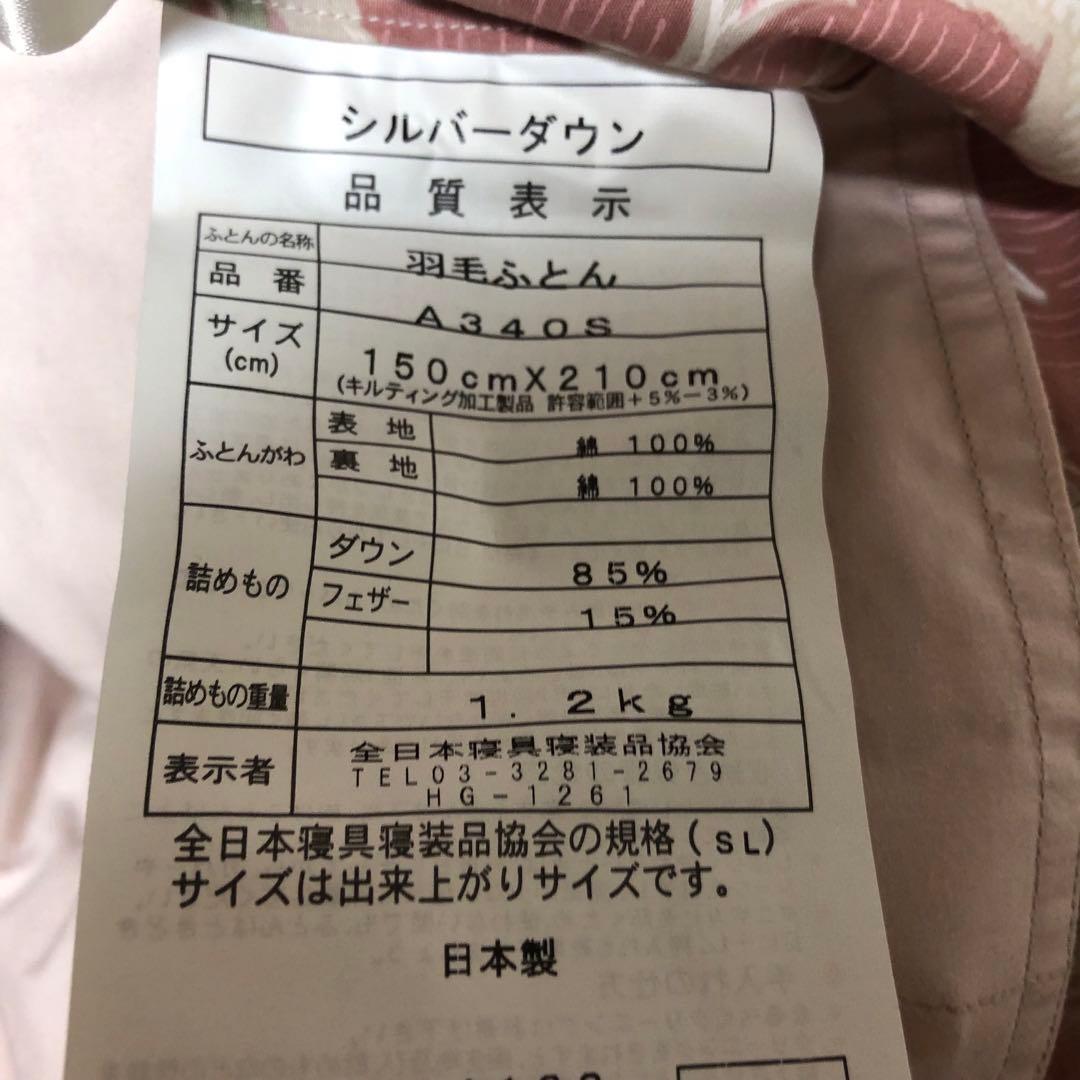 シルバーダウン
品質表示
ふとんの名称 羽毛ふとん
品番 A340S
サイズ(cm) 150cmX210cm
(キルティング加工製品 許容範囲+5%-3%)
ふとんがわ 表地 綿 100%
裏地 綿 100%
詰めもの ダウン 85%
フェザー 15%
詰めもの重量 1.2kg
表示者 全日本寝具寝装品協会
TEL03-3281-2679
HG-1261
全日本寝具寝装品協会の規格(SL)
サイズは出来上がりサイズです。
日本製